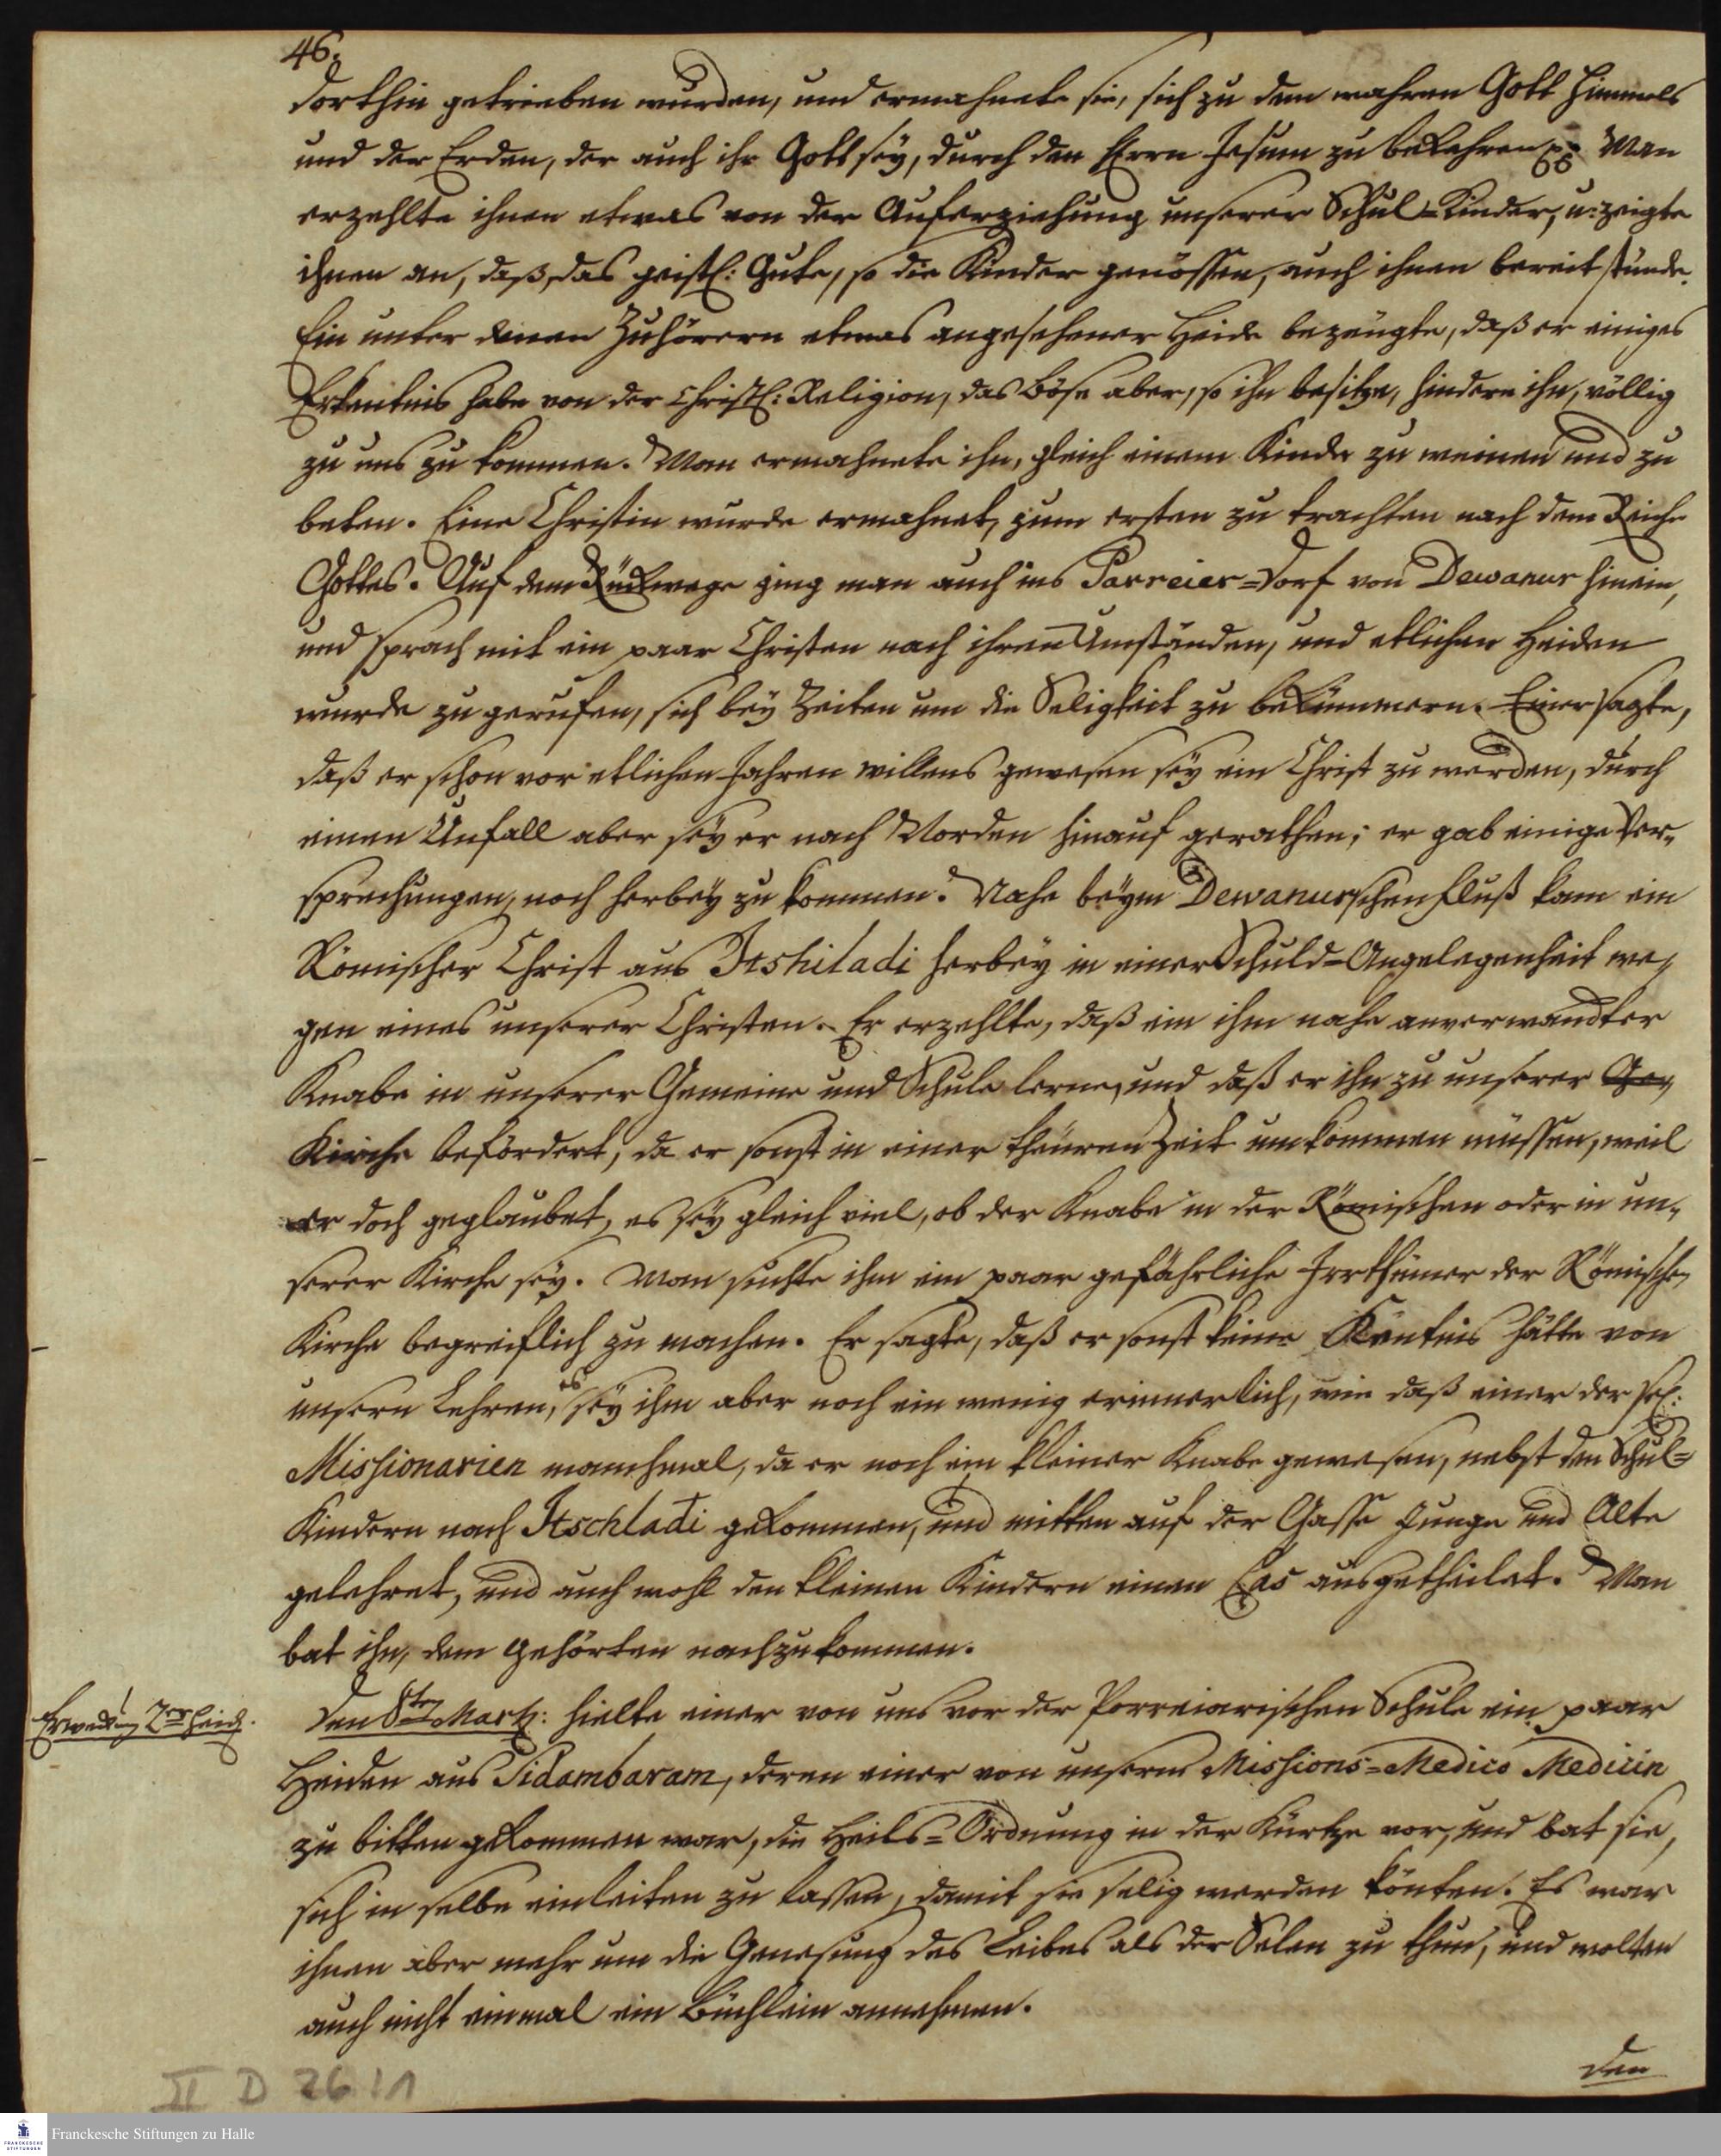 46.
dorthin getrieben wurden, und ermahnete sie, sich zu dem wahren Gott Himmels
und der Erden, der auch ihr Gott sey, durch den HErrn Jesum zu bekehren pp. Man
erzehlte ihnen etwas von der Auferziehung unserer Schul-Kinder, u: zeigte
ihnen an, daß das geistl: Gute, so die Kinder genössen, auch ihnen bereit stünde.
Ein unter denen Zuhörern etwas angesehener Heide bezeugte, daß er einiges
Erkentnis habe von der Christl: Religion, das Böse aber, so ihn besitze, hindere ihn, völlig
zu uns zu kommen. Man ermahnete ihn, gleich einem Kinde zu weinen und zu
beten. Eine Christin wurde ermahnet, zum ersten zu trachten nach dem Reiche
Gottes. Auf dem Rückwege ging man auch ins Parreier-Dorf von Dewanur hinein,
und sprach mit ein paar Christen nach ihren Umständen, und etlichen Heiden
wurde zugerufen, sich bey Zeiten um die Seligkeit zu bekümmern. Einer sagte,
daß er schon vor etlichen Jahren willens gewesen sey ein Christ zu werden, durch
einen Unfall aber sey er nach Norden hinauf gerathen; er gab einige Ver-
sprechungen, noch herbey zu kommen. Nahe beym Dewanurschen Fluß kam ein
Römischer Christ aus Itshiladi herbey in einer Schuld-Angelegenheit we-
gen eines unserer Christen. Er erzehlte, daß ein ihm nahe anverwandter
Knabe in unserer Gemeine und Schule lerne, und daß er ihn zu unserer Ge-
Kirche befördert, da er sonst in einer theuren Zeit umkommen müssen, weil
er doch geglaubet, es sey gleich viel, ob der Knabe in der Römischen oder in un-
serer Kirche sey. Man suchte ihm ein paar gefährliche Irrthümer der Römischen
Kirche begreiflich zu machen. Er sagte, daß er sonst keine Kentnis hätte von
unsern Lehren, es sey ihm aber noch ein wenig erinnerlich, wie daß einer der sel:
Missionarien manchmal, da er noch ein kleiner Knabe gewesen, nebst den Schul-
Kindern nach Itschladi gekommen, und mitten auf der Gasse Junge und Alte
gelehret, und auch wohl den kleinen Kindern einen Cas ausgetheilet. Man
bat ihn, dem Gehörten nachzukommen.
Erweckung 2er Heid.
Den 8ten Martz: hielte einer von uns vor der Porreiarischen Schule ein paar
Heiden aus Sidambaram, deren einer von unserm Missions-Medico Medicin
zu bitten gekommen war, die Heils-Ordnung in der Kürtze vor, und bat sie,
sich in selbe einleiten zu lassen, damit sie selig werden könten. Es war
ihnen aber mehr um die Genesung des Leibes als der Selen zu thun, und wolten
auch nicht einmal ein Büchlein annehmen.
Den
II D 26 : 1
Franckesche Stiftungen zu Halle
FRANCKESCHE
STIFTUNGEN